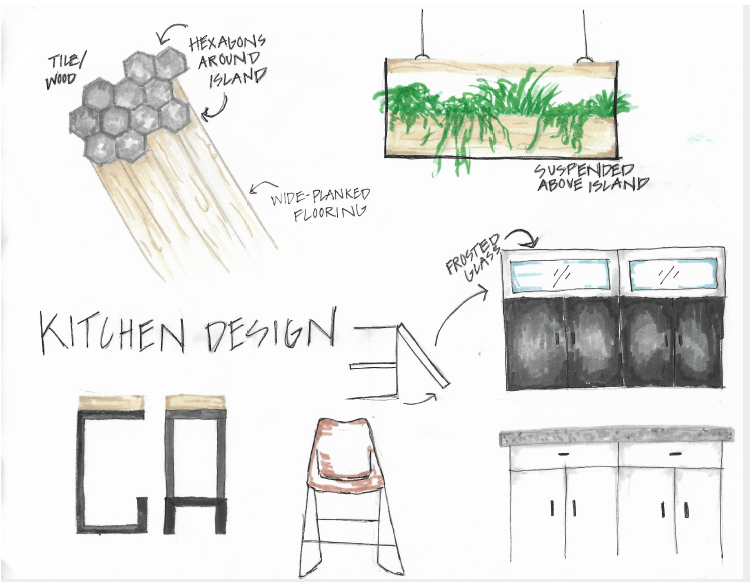 TILE/
WOOD
HEXAGONS
AROUND
ISLAND
WIDE-PLANKED
FLOORING
SUSPENDED
ABOVE ISLAND
FROSTED
GLASS
KITCHEN DESIGN